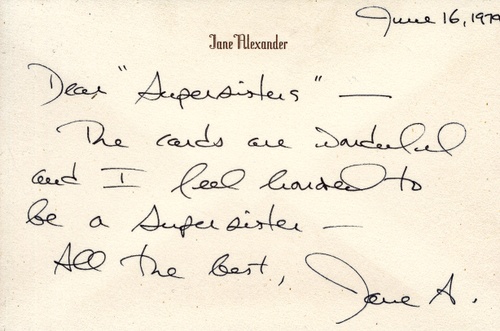 June 16, 1979
Jane Alexander
Dear "Supersisters" —
The cards are wonderful
and I feel honored to
be a Supersister —
All the best, Jane A.